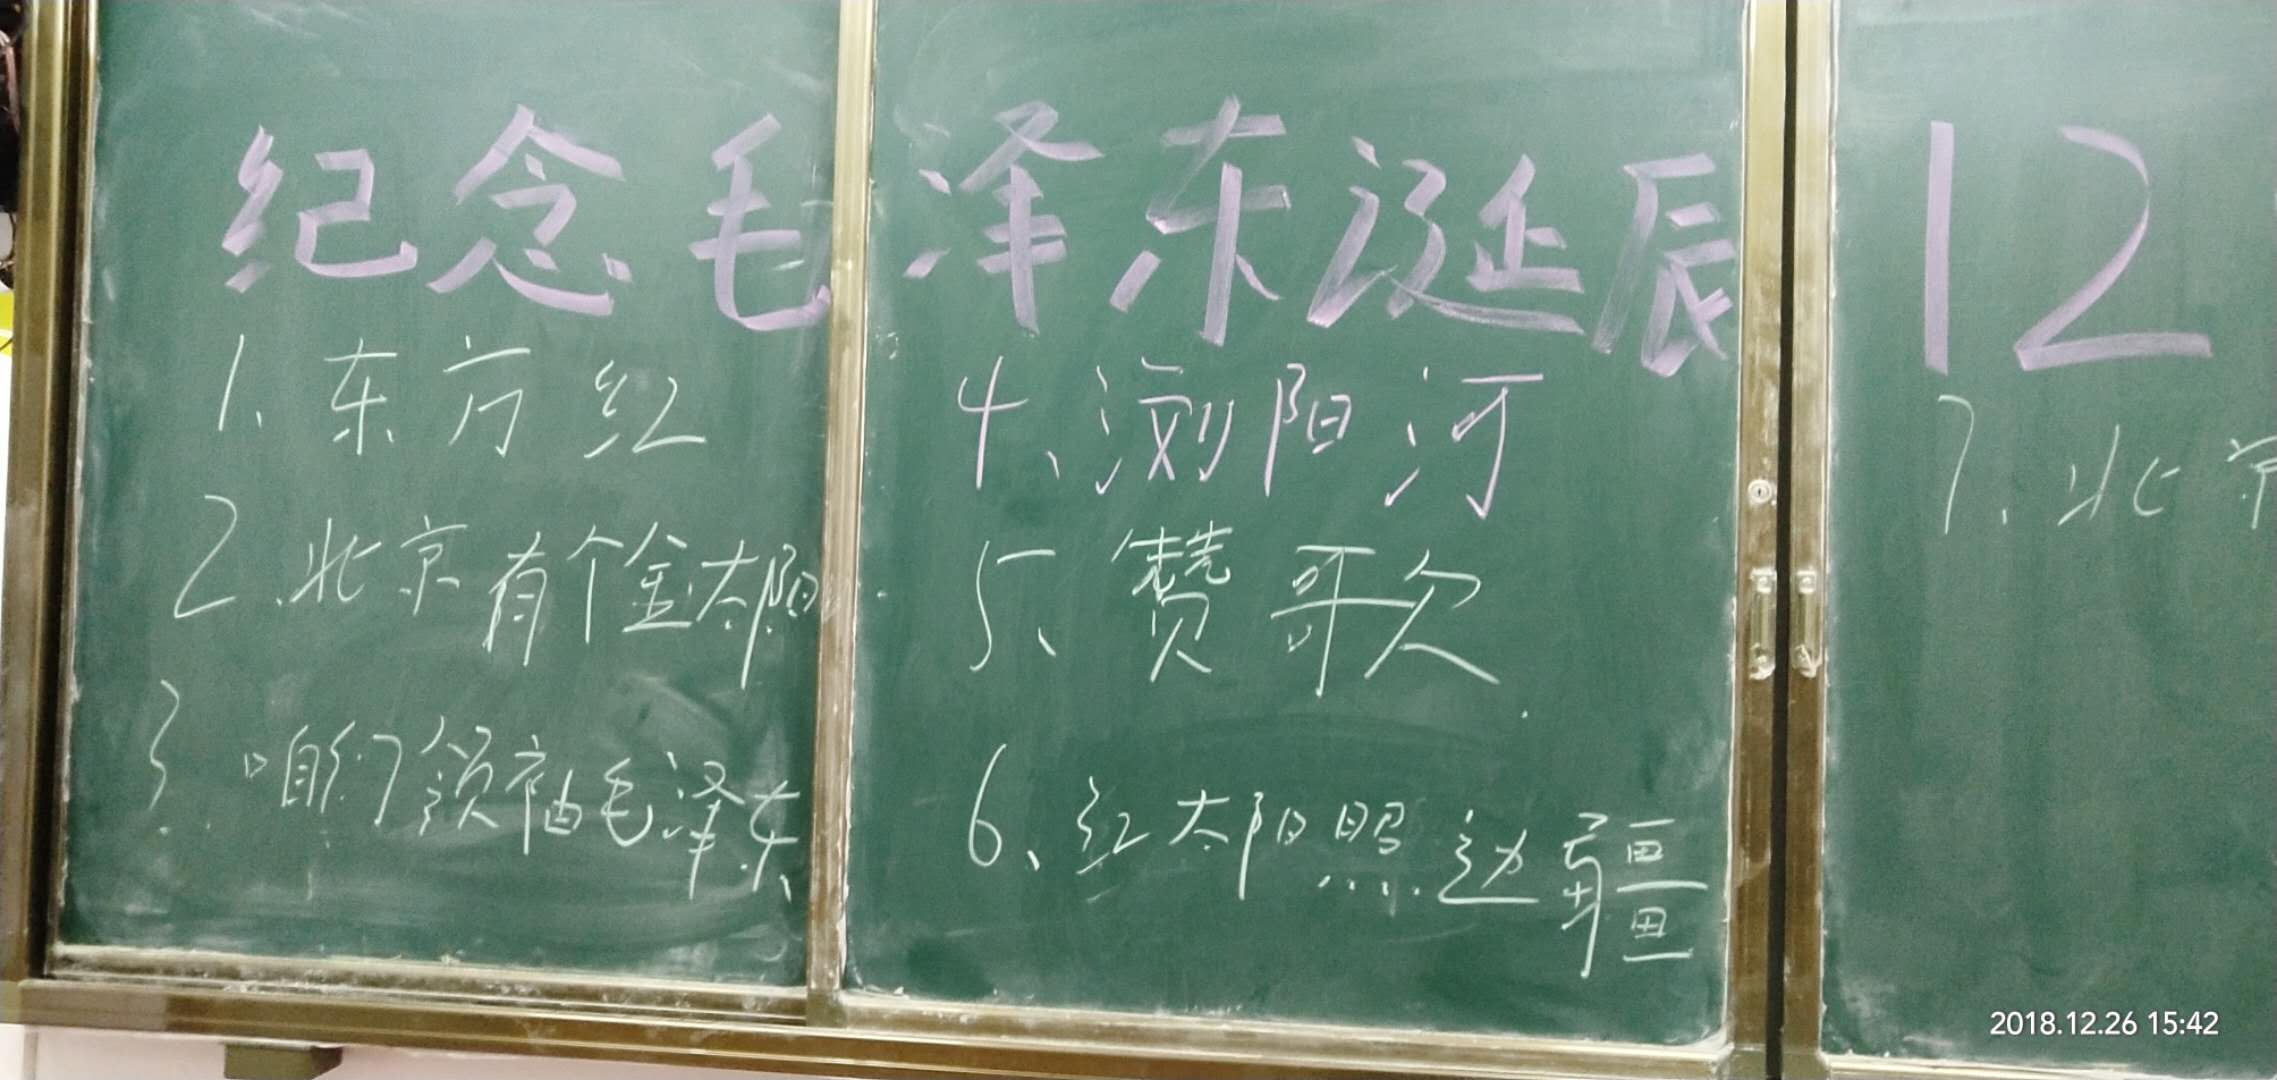 纪念毛泽东诞辰 12
1、东方红
2、北京有个金太阳
3、咱们领袖毛泽东
4、浏阳河
5、赞歌
6、红太阳照边疆
7、北京
2018.12.26 15:42